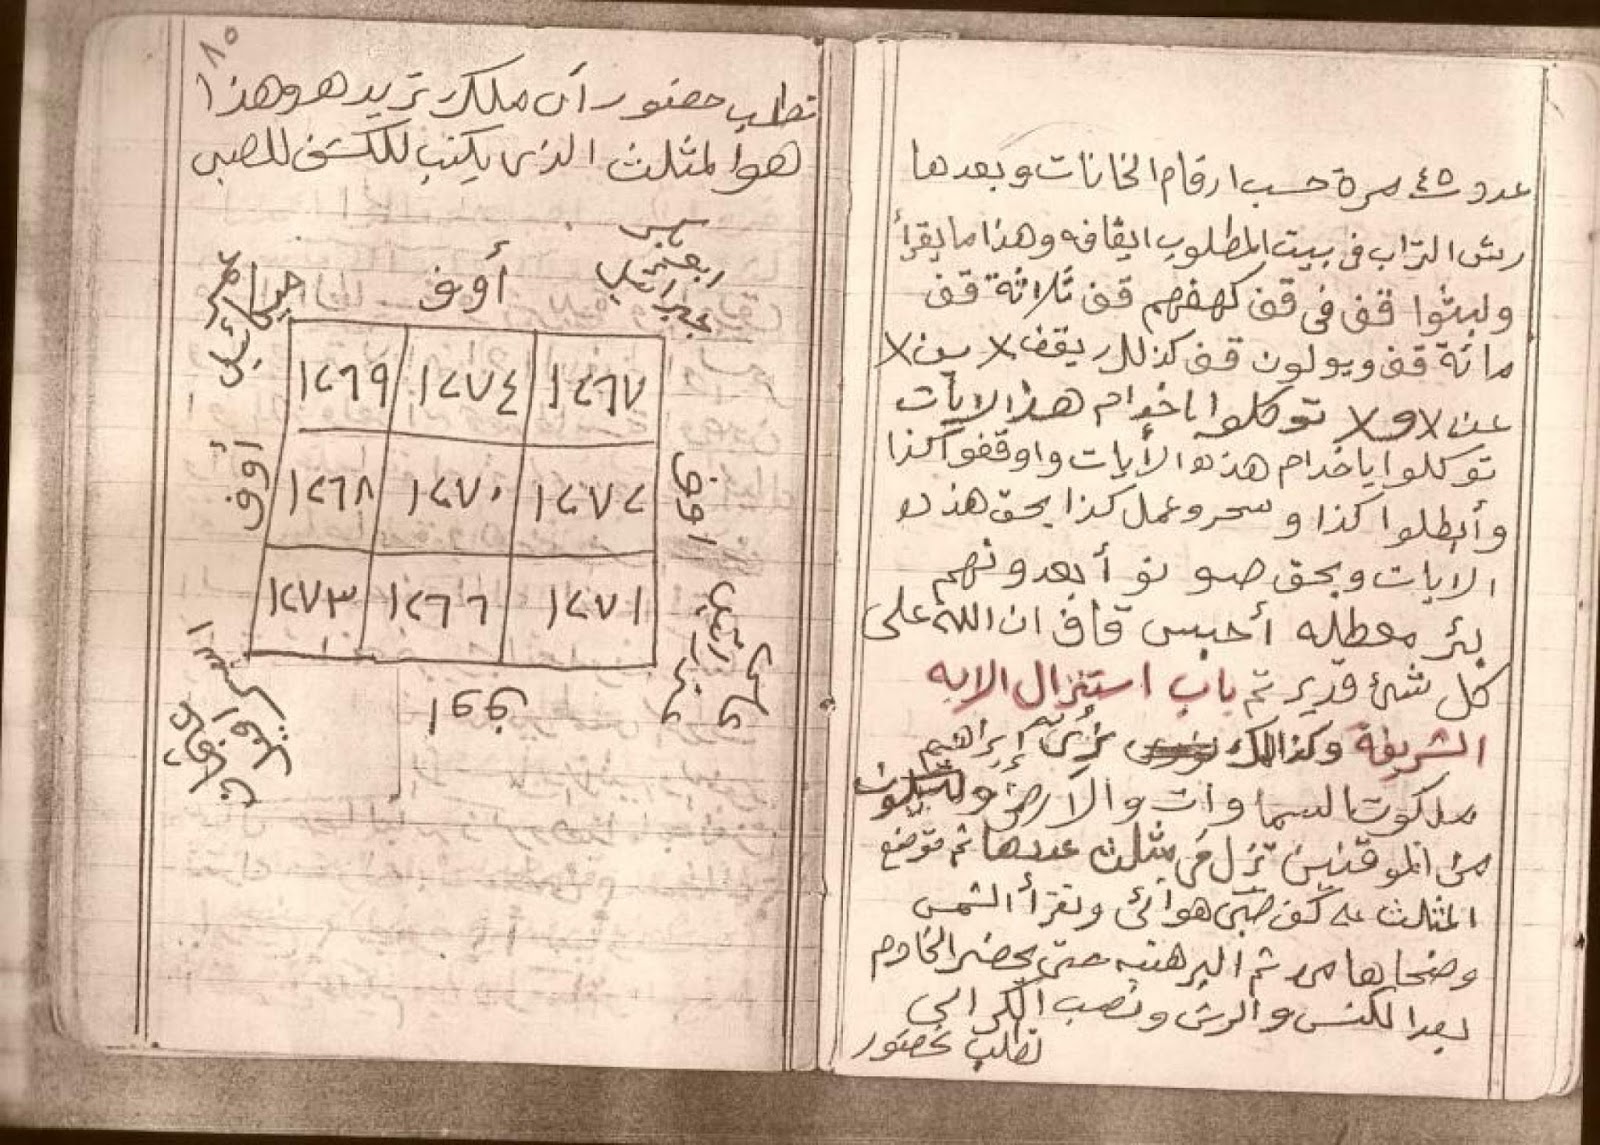 عدد ٤٥ مرة حسب ارقام الخانات وبعدها
رش التراب فى بيت المطلوب ايقافه وهذا ما يقرأ
ولبثوا قف فى قف كهفهم قف ثلاثة قف
مائة قف ويولون قف كذلك يقف لا يمن لا
عن لا ولا توكلوا يا خدام هذا الايات
توكلوا يا خدام هذه الأيات واوقفوا كذا
وأبطلوا كذا وسحر وعمل كذا بحق هذه
الايات وبحق صو نو أبعدونهم
بئر معطله أحبس قاف ان الله على
كل شئ قدير تم باب استنزال الايه
الشريفة وكذالك نرى إبراهيم
ملكوت السماوات والأرض وليكون
من الموقنين تنزل فى مثلث عددها ثم توضع
المثلث على كف صبى هوائى وتقرأ الشمس
وضحاها مره ثم البرهتيه حتى يحضر الخادم
بعد الكنس والرش ونصب الكراسى
تطلب حضور
٨٠
تطلب حضور أى ملك تريده وهذا
هو المثلث الذى يكتب للكشف للصبى
جبرائيل
أوف
ميكائيل
١٢٦٩ ١٢٧٤ ١٢٦٧
١٢٦٨ ١٢٧٠ ١٢٧٢
١٢٧٣ ١٢٦٦ ١٢٧١
أوف